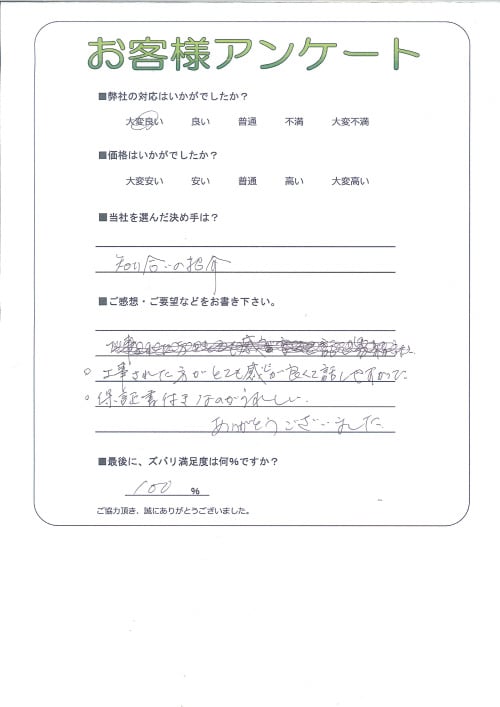 お客様アンケート
■弊社の対応はいかがでしたか？
大変良い 良い 普通 不満 大変不満
■価格はいかがでしたか？
大変安い 安い 普通 高い 大変高い
■当社を選んだ決め手は？
知り合いの紹介
■ご感想・ご要望などをお書き下さい。
○工事された方がとても感じが良くて話しやすかった
○保証書付きなのがうれしい。
ありがとうございました
■最後に、ズバリ満足度は何%ですか？
100 %
ご協力頂き、誠にありがとうございました。